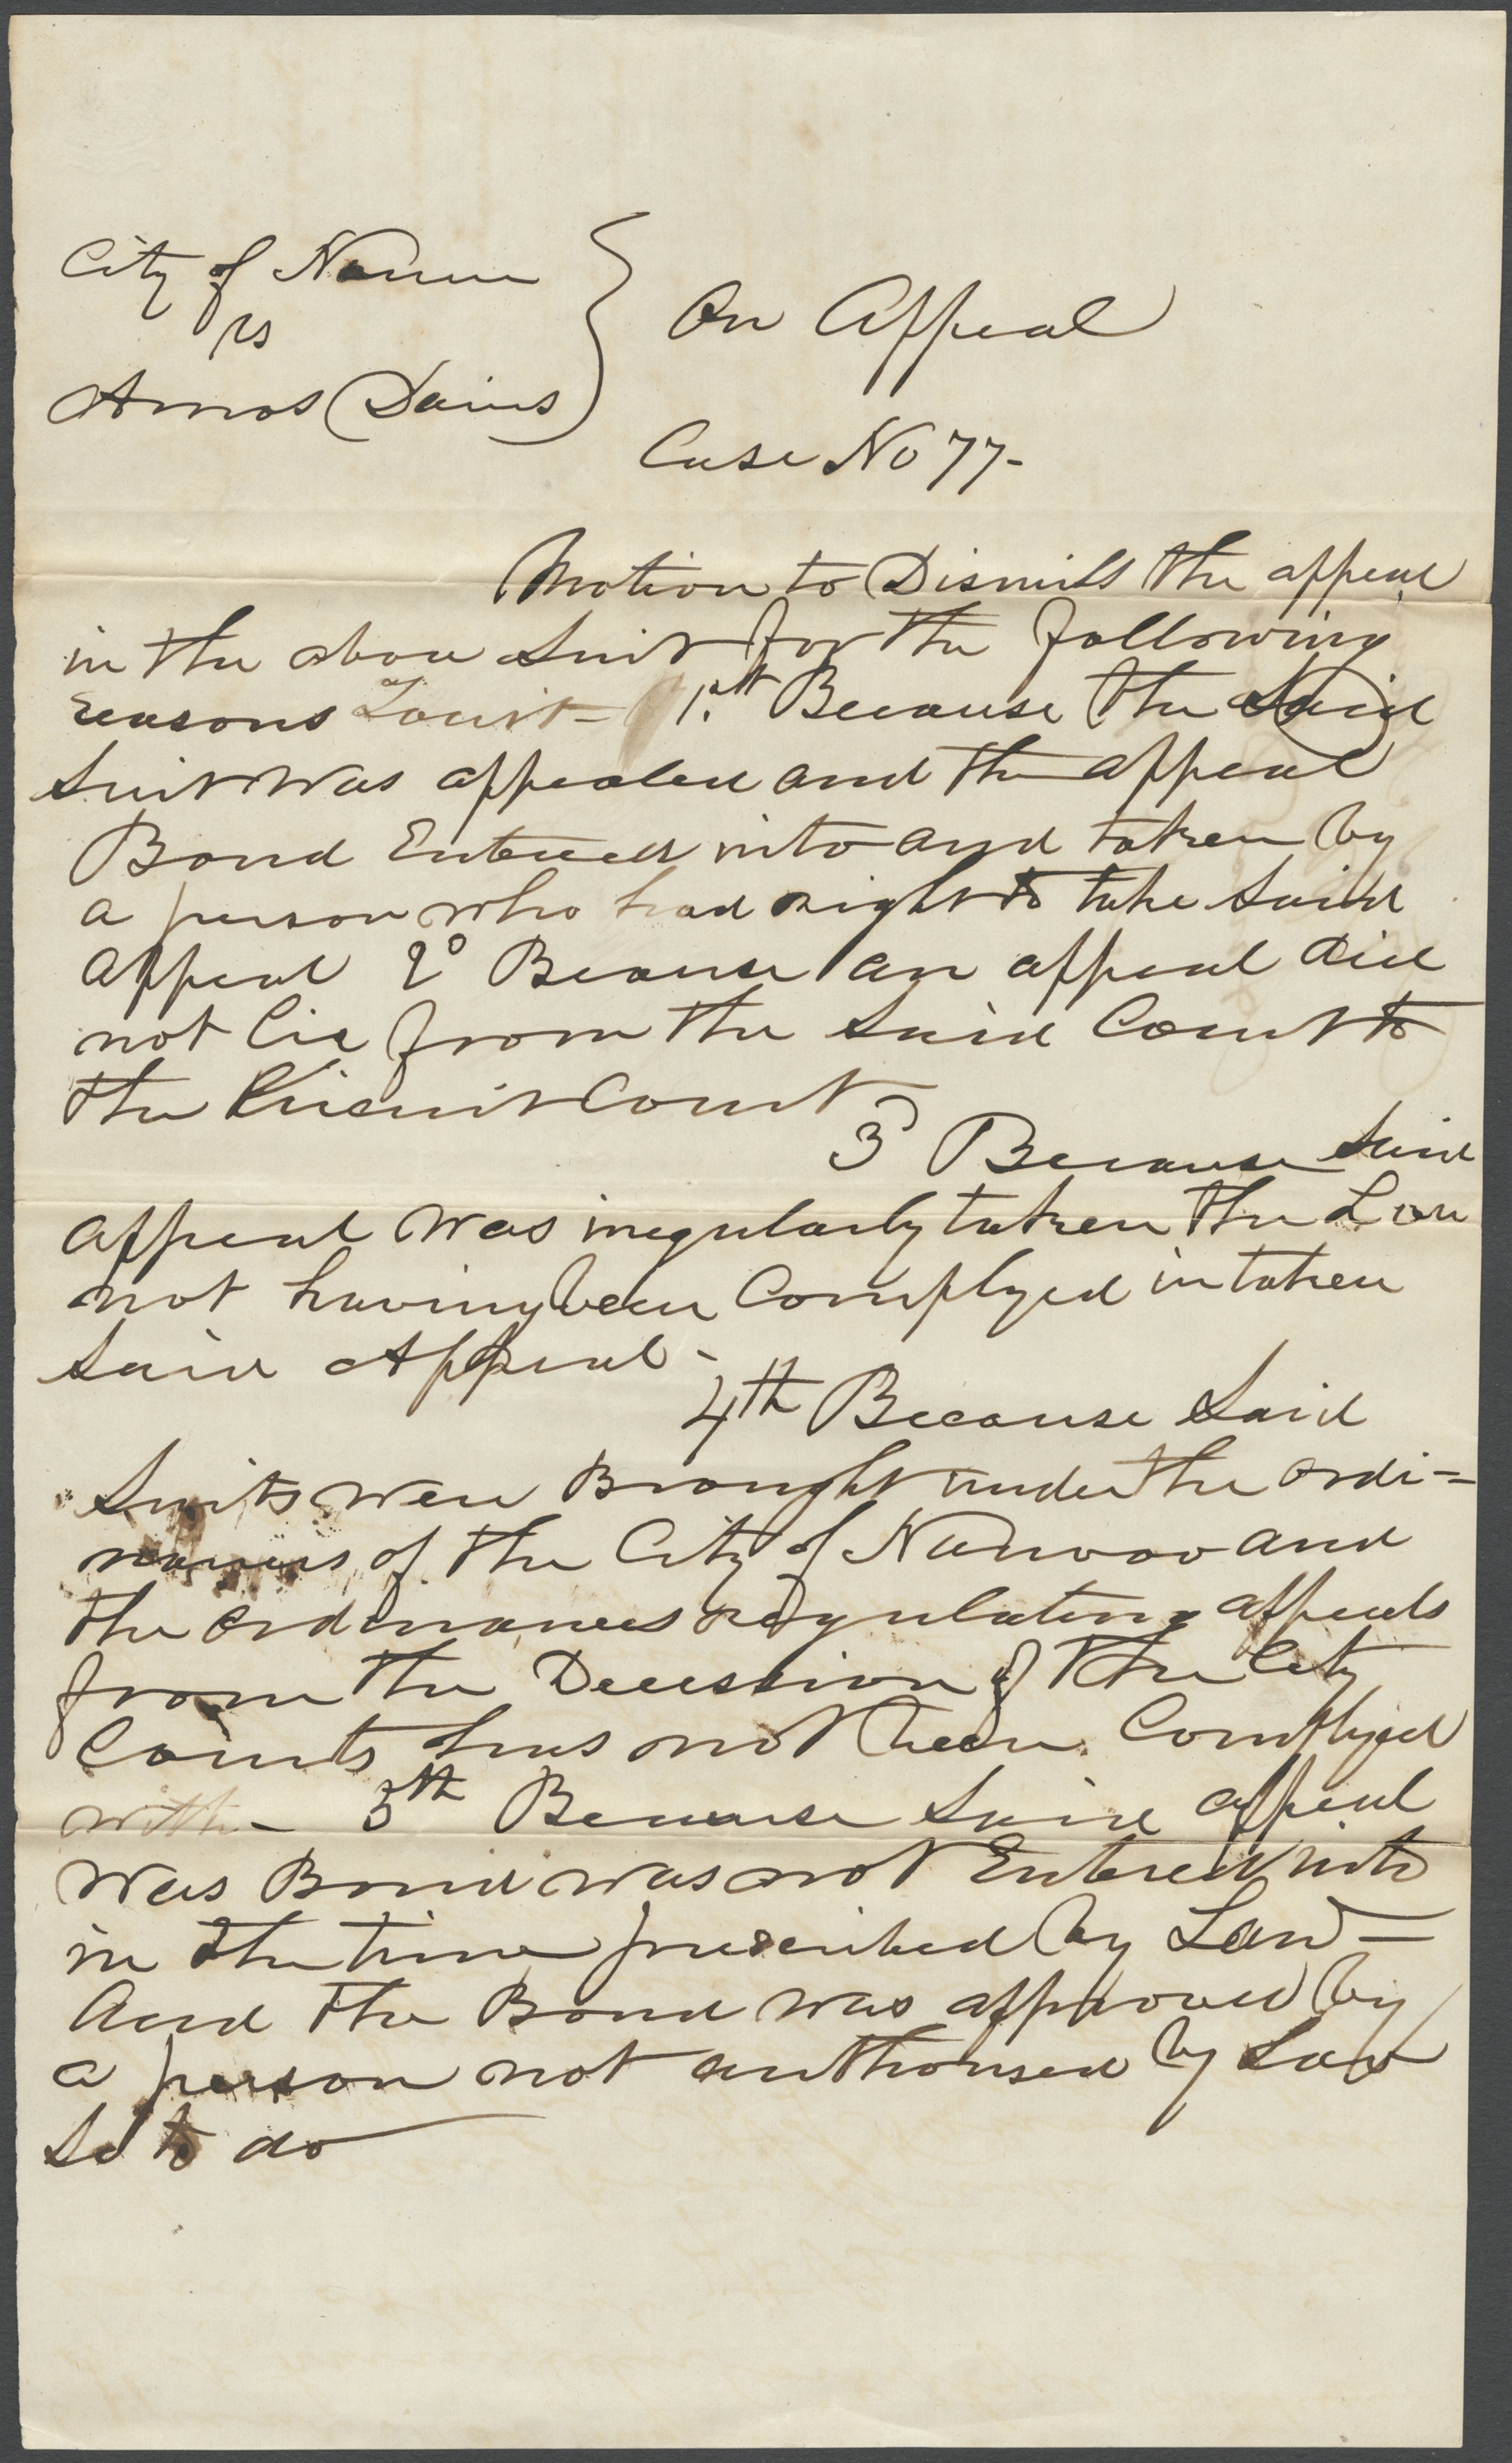 City of Nauvoo
vs
Amos Davis
On Appeal
Case No 77-
Motion to Dismiss the appeal
in the above Suit for the following
reasons Towit- 1st Because the Said
Suit was appealed and the appeal
Bond Entered into and taken by
a person who had right to take Said
appeal 2d Because an appeal did
not lie from the Said Court to
the Circuit Court
3d Because Said
appeal was iregularly taken the Law
not having been Complyed in taken
Said Appeal-
4th Because Said
Suits were Brought under the ordi=
nances of the City of Nauvoo and
the ordinances regulating appeals
from the Decession of the City
Courts has not been Complyed
with- 5th Because Said appeal
was Bond was not Entered into
in the time prescribed by Law-
And the Bond was approved by
a person not authorised by Law
So to do